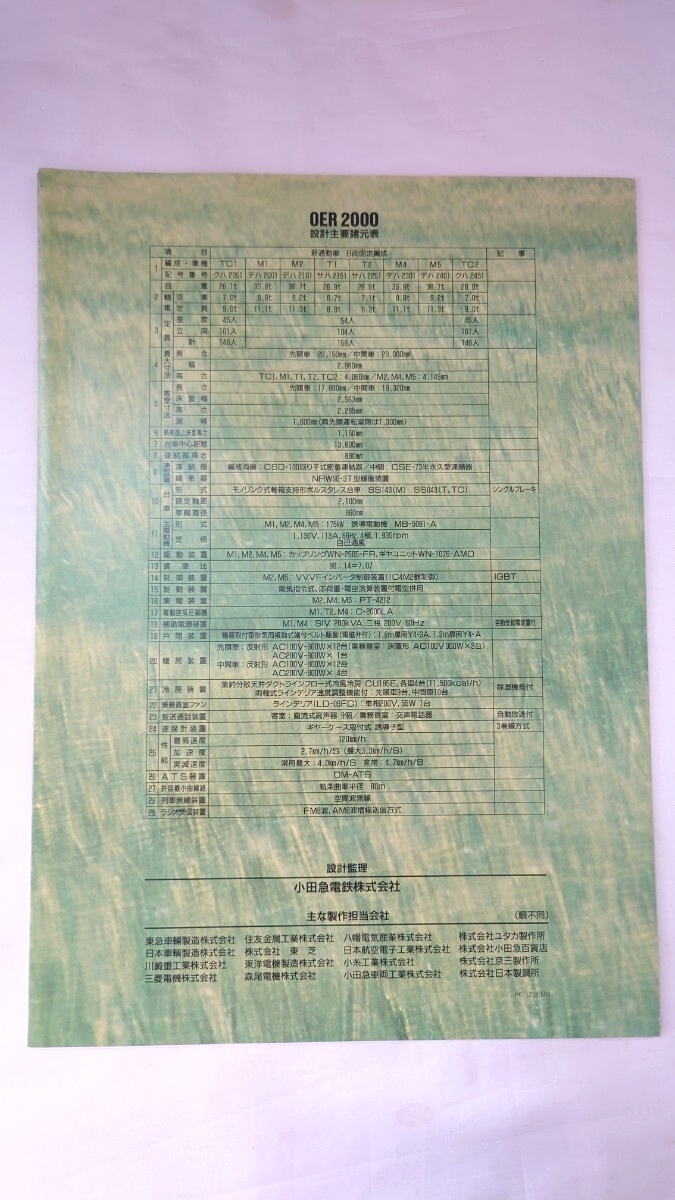 OER 2000
設計主要諸元表
項 目 新通勤車 8両固定編成 記 事
1 編成・車種 TC1 M1 M2 T1 T2 M4 M5 TC2
記号番号 クハ2051 デハ2001 デハ2101 サハ2151 サハ2251 デハ2301 デハ2401 クハ2451
自 重
2 空 車 7.0t
定 員
3 定員 座 席 45人 54人 45人
立 席 101人 104人 101人
計 146人 158人 146人
4 最大寸法 長 さ 先頭車:20,150㎜/中間車:20,000㎜
幅 2,860㎜
高 さ TC1,M1,T1,T2,TC2:4,060㎜/M2,M4,M5:4,145㎜
5 客室寸法 長 さ
床面幅
高 さ 2,285㎜
扉 幅 1,600㎜(両先頭運転室側は1,300㎜)
6 1,150㎜
7 台車中心距離 13,800㎜
8 連結器高さ 880㎜
9 連結器 編成両端:CSD-100回り子式密着連結器/中間:CSE-73半永久型連結器
緩衝器
10 台車 形 式 モノリンク式軸箱支持形ボルスタレス台車 SS143(M) SS043(T,TC) シングルブレーキ
固定軸距 2,100㎜
車輪直径 860㎜
11 主電動機 形 式 M1,M2,M4,M5:175kW 誘導電動機 MB-5061-A
定 格 自己通風
12 駆動装置 M1,M2,M4,M5:カップリングWN-2505-FR,ギヤユニットWN-1076-AMD
13 歯車比 99:14=7.07
14 制御装置 M2,M5:VVVFインバータ制御装置(1C4M2群制御) IGBT
15 制動装置 電気指令式,応荷重・電空演算装置付電空併用
16 集電装置 M2,M4,M5:PT-4212
17 電動空気圧縮機 M1,T2,M4:C-2000LA
18 補助電源装置 M1,M4:SIV 200kVA 三相 200V 60Hz
19 戸閉装置
20 暖房装置 先頭車:反射形 AC100V-800W×12台(乗務員室:床置形 AC100V 900W×2台)
AC200V-800W× 1台
中間車:反射形 AC100V-800W×12台
AC200V-800W× 4台
21 冷房装置 集約分散天井ダクトラインフロー式冷風冷房 CU195E,各車4台(11,500kcal/h) 除湿機能付
両軸式ラインデリア速度調整機能付:先頭車9台,中間車10台
22 乗務員室ファン ラインデリア(LD-09FC):単相200V,55W 1台
23 放送通話装置 客室:直流式高声器 9個/乗務員室:交声電話器 自動放送付
24 速度計装置 ギヤーケース取付式 誘導子型 3巻線方式
25 性能 最高速度 120km/h
加速度 2.7km/h/S(最大3.3km/h/S)
減速度 常用最大:4.0km/h/S 非常:4.7km/h/S
26 ATS装置 OM-ATS
27 許容最小曲線路 軌条曲率半径 80m
28 列車無線装置 空間波無線
29 ラジオ受信装置 FM8波,AM6波増幅送信方式
設計監理
小田急電鉄株式会社
主な製作担当会社 (順不同)
東急車輛製造株式会社 住友金属工業株式会社 八幡電気産業株式会社 株式会社ユタカ製作所
日本車輌製造株式会社 株式会社 東 芝 日本航空電子工業株式会社 株式会社小田急百貨店
川崎重工業株式会社 東洋電機製造株式会社 小糸工業株式会社 株式会社京三製作所
三菱電機株式会社 森尾電機株式会社 小田急車両工業株式会社 株式会社日本製鋼所